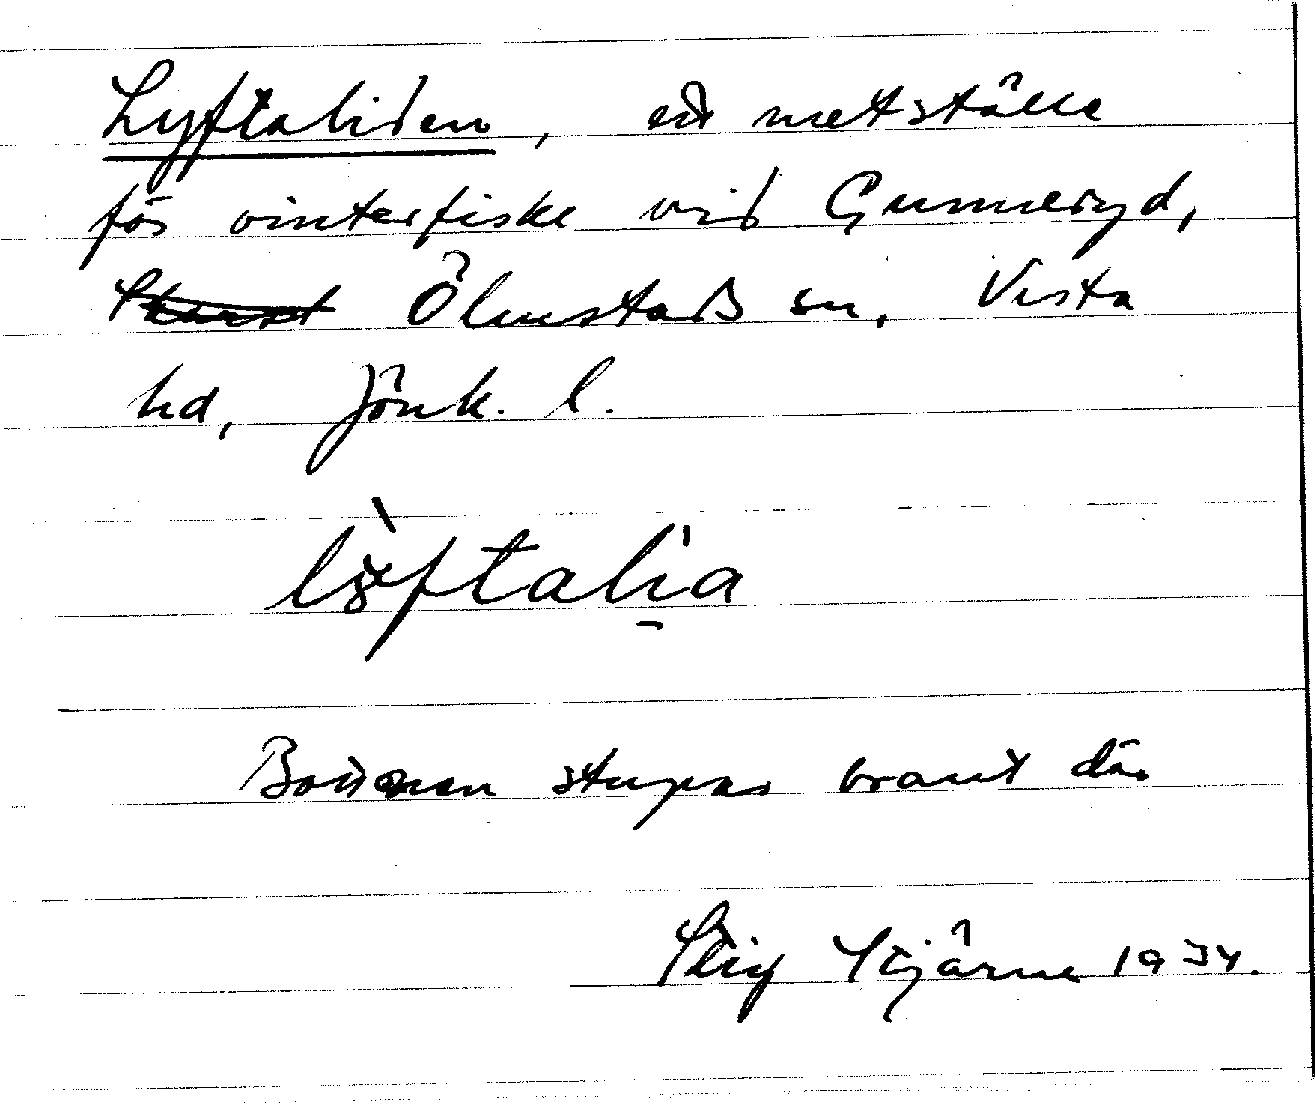 Lyftaliden, ett metställe
för vinterfiske vid Gunneryd,
Ölmstads sn, Vista
hd, Jönk. l.
Bottnen stupar brant där
Stig Stjärne 1934.